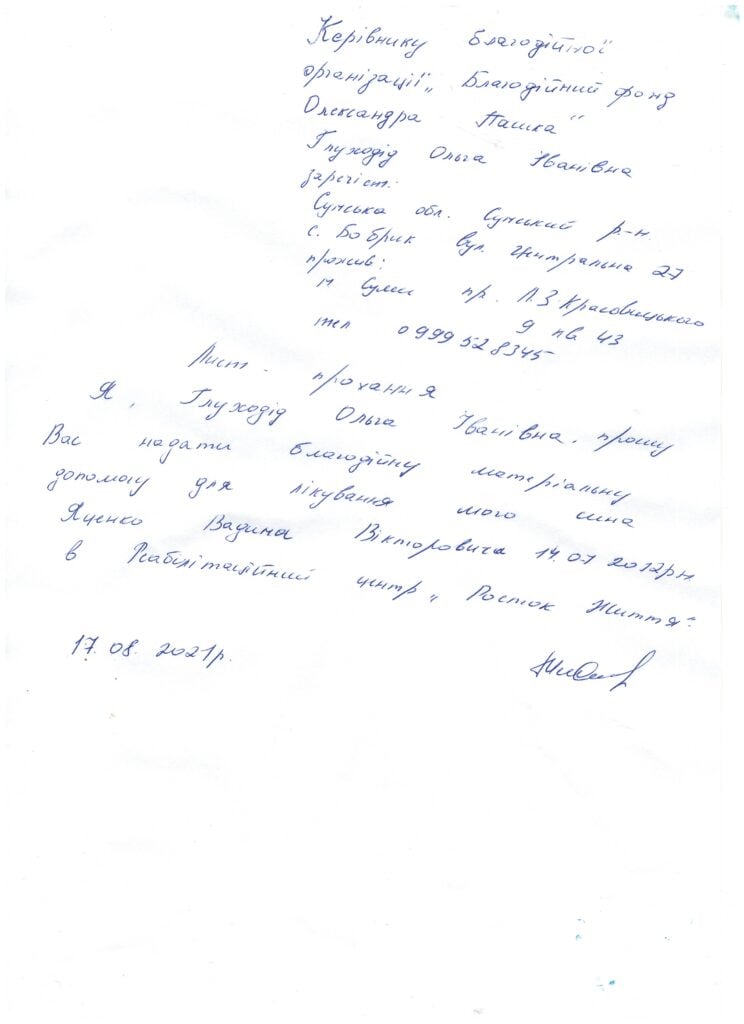 Керівнику благодійної
організації „Благодійний фонд
Олександра Пашка"
Глуходід Ольга Іванівна
зареєіст.
Сумська обл. Сумський р-н
с. Бобрик вул. Центральна 27
прожив:
м Суми пр. Л.З Красовицького
9 кв 43
тел 0999528345
Лист - прохання
Я, Глуходід Ольга Іванівна, прошу
Вас надати благодійну матеріальну
допомогу для лікування мого сина
Яценко Вадима Вікторовича 14.07 2012рн
в Реабілітаційний центр „Росток Життя".
17.08.2021р.